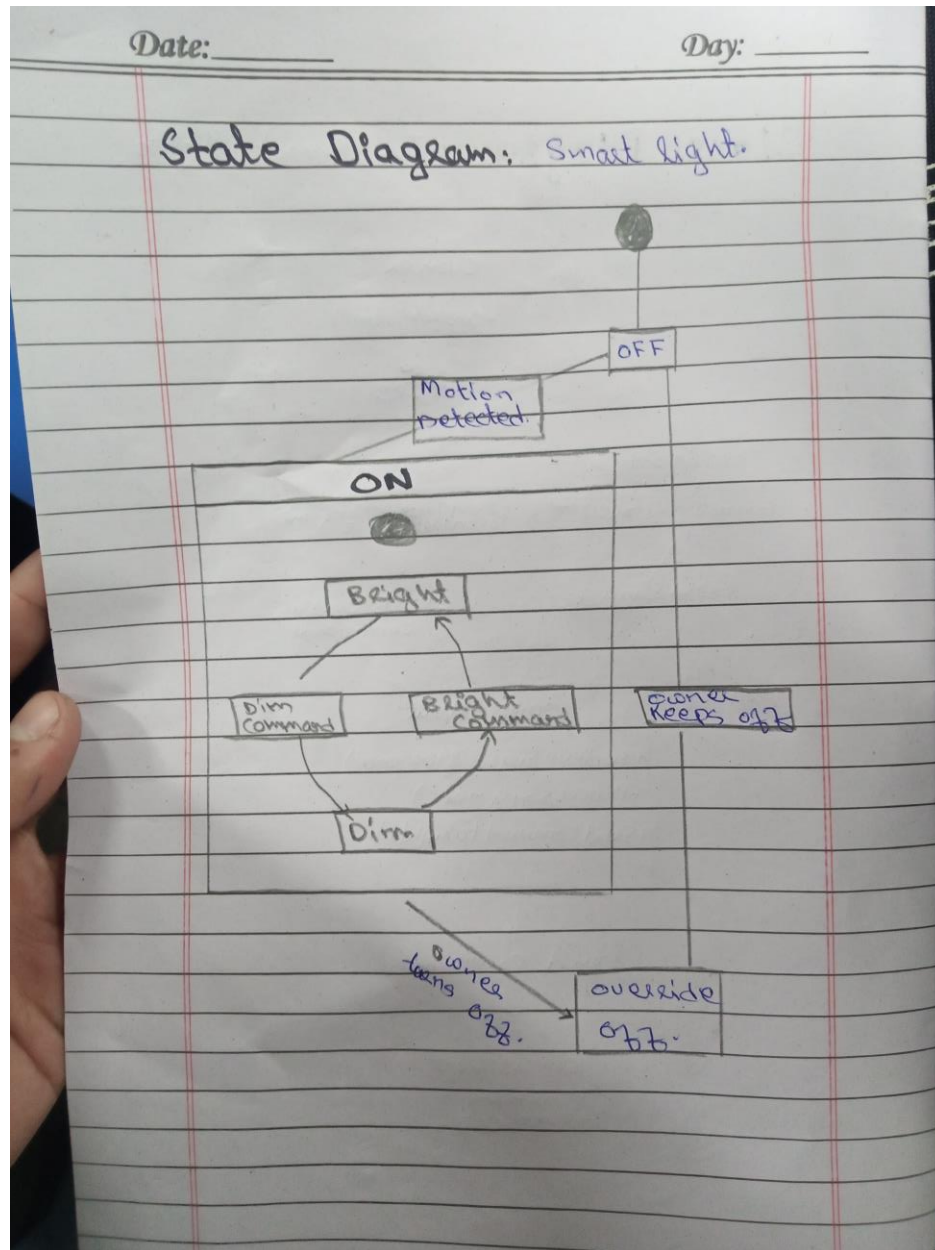 Date:
Day:
State Diagram: Smart light.
OFF
Motion
Detected.
ON
Bright
Dim
Command
Bright
Command
owner
Keeps off
Dim
owner
turns
off.
override
off.